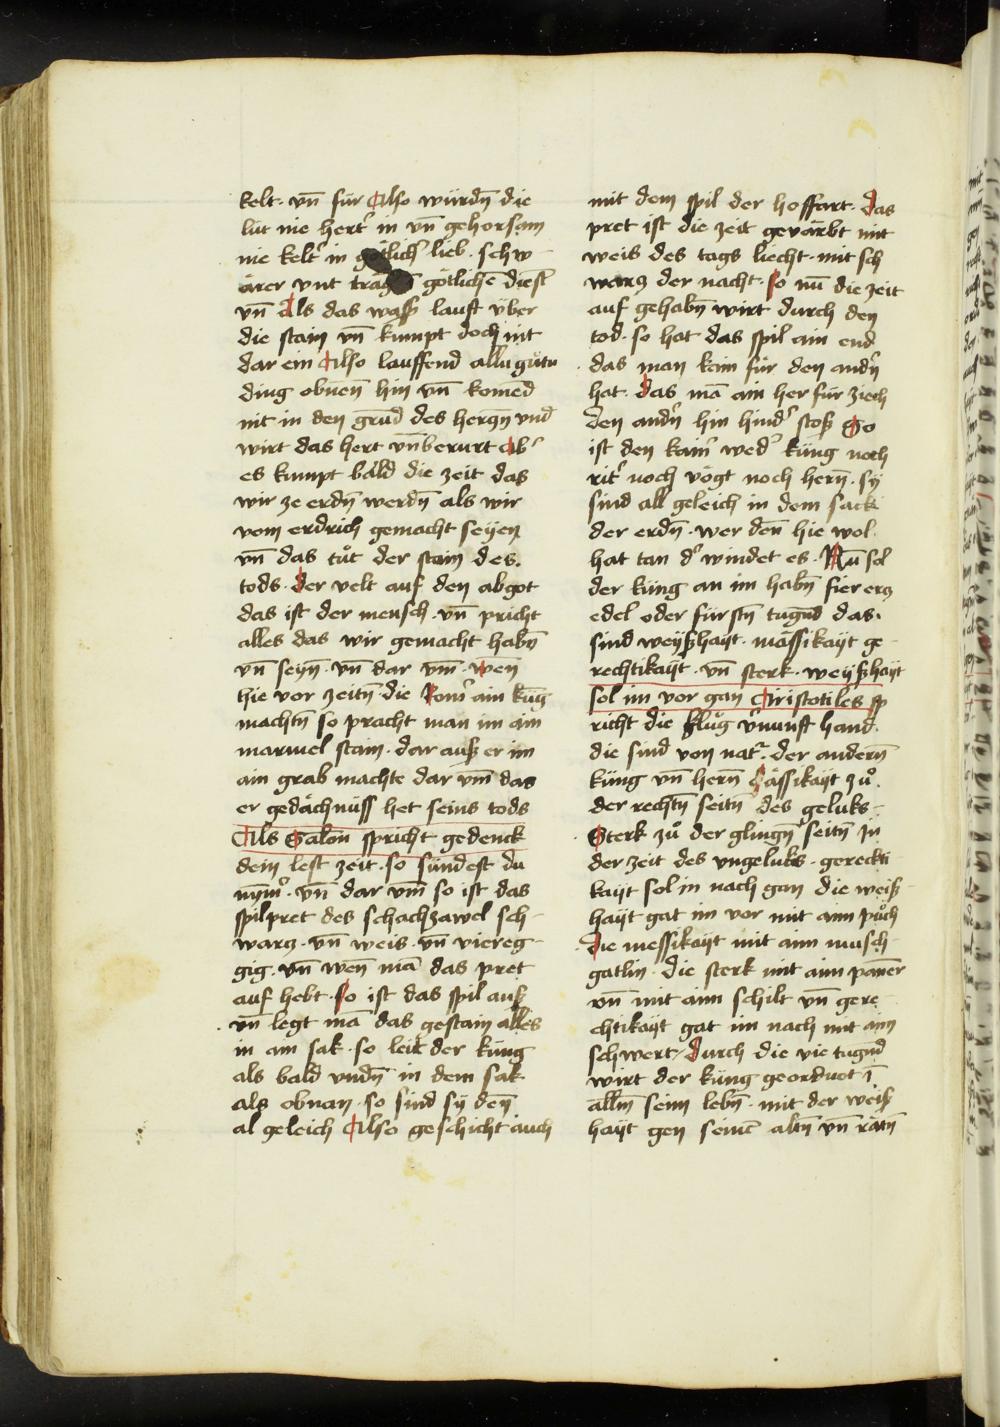 kelt· vn̄ für Also würdn̄ die
lüt nie hert̾ in vn̄ gehorsam
nie kelt̾ in götlich̾ lieb· schw
ärer vnt träg götlichē dienst
vn̄ Als das wass̾ lauft über
die stain vn̄ kumpt doch nit
dar ein Also lauffend allü gütu
ding obnen̄ hin vn̄ komēd
nit in den grūd des hertzn̄ vnd
wirt das hert vn̄berurt ab̾
es kumpt bald die zeit das
wir ze erdn̄ werdn̄ als wir
vom erdrich gemacht seyen
vn̄ das tůt der stain des·
tods· der velt auf den abgot
das ist der mensch· vn̄ pricht
alles das wir gemacht habn̄
vn̄ seyn̄· vn̄ dar vm̄· wen̄
hie vor zeitn̄ die Rom̾ ain küg
machtn̄ so pracht man im ain
marmel stain· dar auß er im
ain grab machte dar vm̄ das
er gedächnüss het seins tods
Als Salon̄ spricht gedenck
dein lest zeit· so sündest du
nym̄̾· vn̄ dar vm̄ so ist das
spilpret des schachzawel sch
warcz· vn̄ weis· vn̄ viereg
gig· vn̄ wen̄ mā das pret
auf hebt· so ist das spil auß
vn̄ legt mā das gestain alles
in ain sak· so leit der küng
als bald vndn̄ in dem sak
als obnan· so sind sy den̄
al geleich Also geschicht auch
mit dem spil der hoffart· das
pret ist die zeit gevärbt mit
weis des tags liecht· mit sch
warcz der nacht· so nū die zeit
auf gehabn̄ wirt durch den
tod· so hat das spil ain end
das man kain für den andn̾
hat· das mā ain her für ziech
den andn̾ hin hind̾ stoß So
ist den kain̾ wed̾ küng noch
rit̾ noch vögt noch hern̄· sy
sind all geleich in dem sack
der erdn̄· wer den̄ hie wol·
hat tan d̾ vindet es· Nū sol
der küng an im habn̄ fier ercz
edel oder fürstn̄ tugn̄d das·
sind weyßhayt· mässikayt ge
rechtikayt· vn̄ sterk· weyßhayt
sol im vor gan Aristotiles sp
richt die klůg v̾nunft hand·
die sind von nat̾· der andern̄
küng vn̄ hern̄ Mässikayt zů·
der rechtn̄ seitn̄ des geluks
Sterk zů der glingn̄ seitn̄ in
der zeit des vngeluks· gerechti
kayt sol in nach gan die weiß
hayt gat im vor mit aim půch
die messikayt mit aim musch
gatlin· die sterk mit aim paner
vn̄ mit aim schilt vn̄ gere
chtikayt gat im nach mit aim
schwert· durch die vie tugn̄d
wirt der küng geordnet ī
allm̄ seim lebn̄· mit der weiß
hayt gen seinē altn̄ vn̄ rätn̄